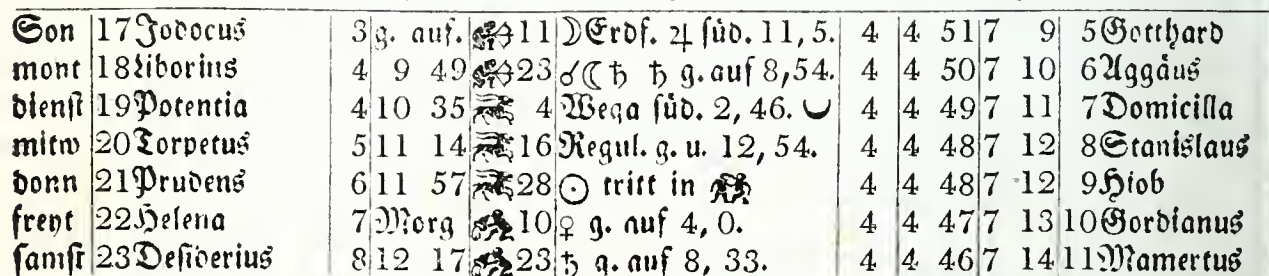 Son 17 Jodocus 3 g. auf. 11 ☽ Erdf. ♃ süd. 11, 5. 4 4 51 7 9 5 Gotthard
mont 18 Liborius 4 9 49 23 ☌ ☾ ♄ ♄ g. auf 8, 54. 4 4 50 7 10 6 Aggäus
dienst 19 Potentia 4 10 35 4 Wega süd. 2, 46. 4 4 49 7 11 7 Domicilla
mitw 20 Torpetus 5 11 14 16 Regul. g. u. 12, 54. 4 4 48 7 12 8 Stanislaus
donn 21 Prudens 6 11 57 28 ☉ tritt in 4 4 48 7 12 9 Hiob
freyt 22 Helena 7 Morg 10 ♀ g. auf 4, 0. 4 4 47 7 13 10 Gordianus
samst 23 Desiderius 8 12 17 23 ♄ g. auf 8, 33. 4 4 46 7 14 11 Mamertus